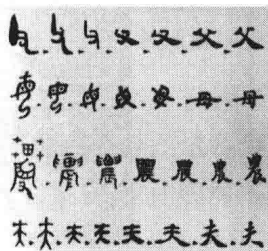 父 父 父 父 父 父 父
母 母 母 母 母 母 母
農 農 農 農 農 農 農
夫 夫 夫 夫 夫 夫 夫